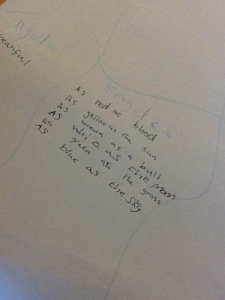 Similes
beautiful
As red as blood
As yellow as the sun
As brown as a bull
As white as the Moon
As green as the grass
blue as the sky